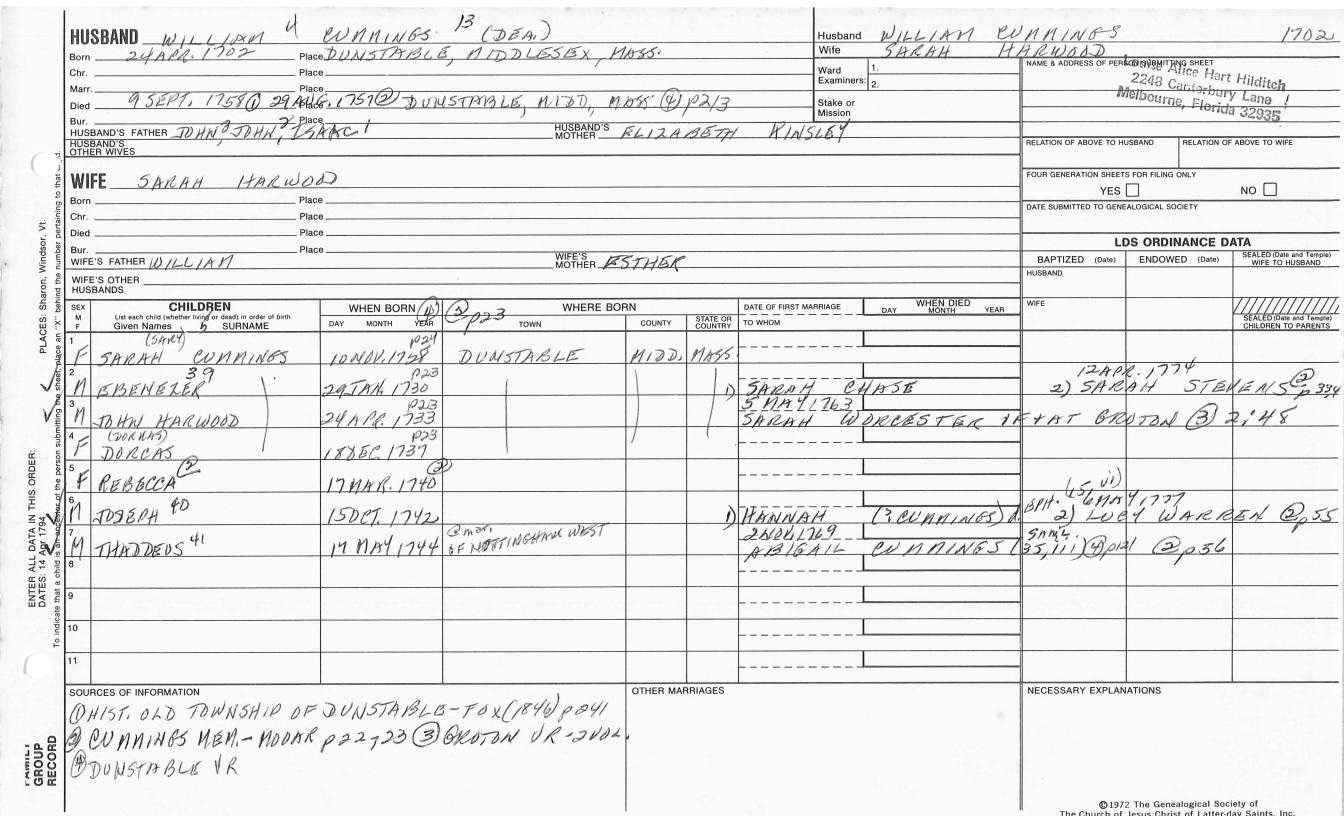 HUSBAND WILLIAM 4 CUMMINGS 13 (DEA.)
Born 24 APR. 1702 Place DUNSTABLE, MIDDLESEX, MASS.
Chr. Place
Marr. Place
Died 9 SEPT. 1758 ① 29 AUG. 1757 ② Place DUNSTABLE, MIDD, MASS ④ p213
Bur. Place
HUSBAND'S FATHER JOHN 3 JOHN 2 ISAAC 1 HUSBAND'S MOTHER ELIZABETH KINSLEY
HUSBAND'S OTHER WIVES
Husband WILLIAM CUMMINGS 1702
Wife SARAH HARWOOD
Ward Examiners: 1.
2.
Stake or Mission
NAME & ADDRESS OF PERSON SUBMITTING SHEET
Louise Alice Hart Hilditch
2248 Canterbury Lane
Melbourne, Florida 32935
RELATION OF ABOVE TO HUSBAND RELATION OF ABOVE TO WIFE
FOUR GENERATION SHEETS FOR FILING ONLY
YES NO
DATE SUBMITTED TO GENEALOGICAL SOCIETY
WIFE SARAH HARWOOD
Born Place
Chr. Place
Died Place
Bur. Place
WIFE'S FATHER WILLIAM WIFE'S MOTHER ESTHER
WIFE'S OTHER HUSBANDS
LDS ORDINANCE DATA
BAPTIZED (Date) ENDOWED (Date) SEALED (Date and Temple) WIFE TO HUSBAND
HUSBAND
WIFE
SEALED (Date and Temple) CHILDREN TO PARENTS
SEX M F
CHILDREN
List each child (whether living or dead) in order of birth
Given Names SURNAME
WHEN BORN DAY MONTH YEAR
② p23
WHERE BORN TOWN COUNTY STATE OR COUNTRY
DATE OF FIRST MARRIAGE TO WHOM
WHEN DIED DAY MONTH YEAR
1 (SARY) p24
F SARAH CUMMINGS 10 NOV. 1728 DUNSTABLE MIDD. MASS.
2 39 p23 12 APR. 1774
M EBENEZER 29 JAN. 1730 1) SARAH CHASE 2) SARAH STEVENS ② p 334
3 p23 5 MAY 1763
M JOHN HARWOOD 24 APR. 1733 SARAH WORCESTER INT AT GROTON ③ 2:48
4 (DORKAS) p23
F DORCAS 18 DEC. 1737
5 ② ②
F REBECCA 17 MAR. 1740
6 (15, vi)
M JOSEPH 40 15 OCT. 1742 1) HANNAH (? CUMMINGS) d. EPH. 6 MAY 1777 2) LUCY WARREN ② p 55
7 @ mar. OF NOTTINGHAM WEST 2 NOV. 1769 SAML.
M THADDEUS 41 17 MAY 1744 ABIGAIL CUMMINGS (35, 111) ④ p121 ② p 56
8
9
10
11
SOURCES OF INFORMATION
① HIST. OLD TOWNSHIP OF DUNSTABLE - FOX (1846) p 241
② CUMMINGS MEM. - MOOAR p 22, 23 ③ GROTON VR - 2 VOL.
④ DUNSTABLE VR
OTHER MARRIAGES
NECESSARY EXPLANATIONS
©1972 The Genealogical Society of
The Church of Jesus Christ of Latter-day Saints, Inc.
FAMILY GROUP RECORD
ENTER ALL DATA IN THIS ORDER:
DATES: 14 Apr 1794
PLACES: Sharon, Windsor, Vt.
To indicate that a child is an ancestor of the person submitting the sheet, place an "X" behind the number pertaining to that child.